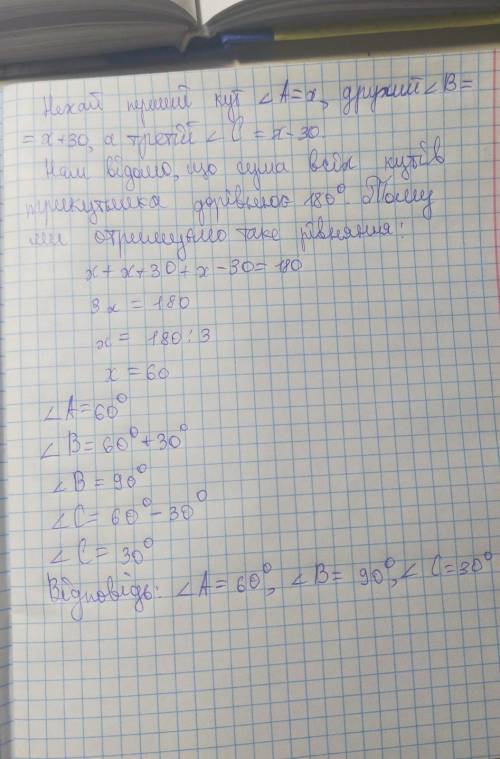 Нехай перший кут ∠A=x, другий ∠B=
= x+30, а третій ∠C = x-30.
Нам відомо, що сума всіх кутів
трикутника дорівнює 180°. Тому
ми отримуємо таке рівняння:
x + x+30 + x - 30 = 180
3x = 180
x = 180 : 3
x = 60
∠A = 60°
∠B = 60° + 30°
∠B = 90°
∠C = 60° - 30°
∠C = 30°
Відповідь: ∠A = 60°, ∠B = 90°, ∠C = 30°